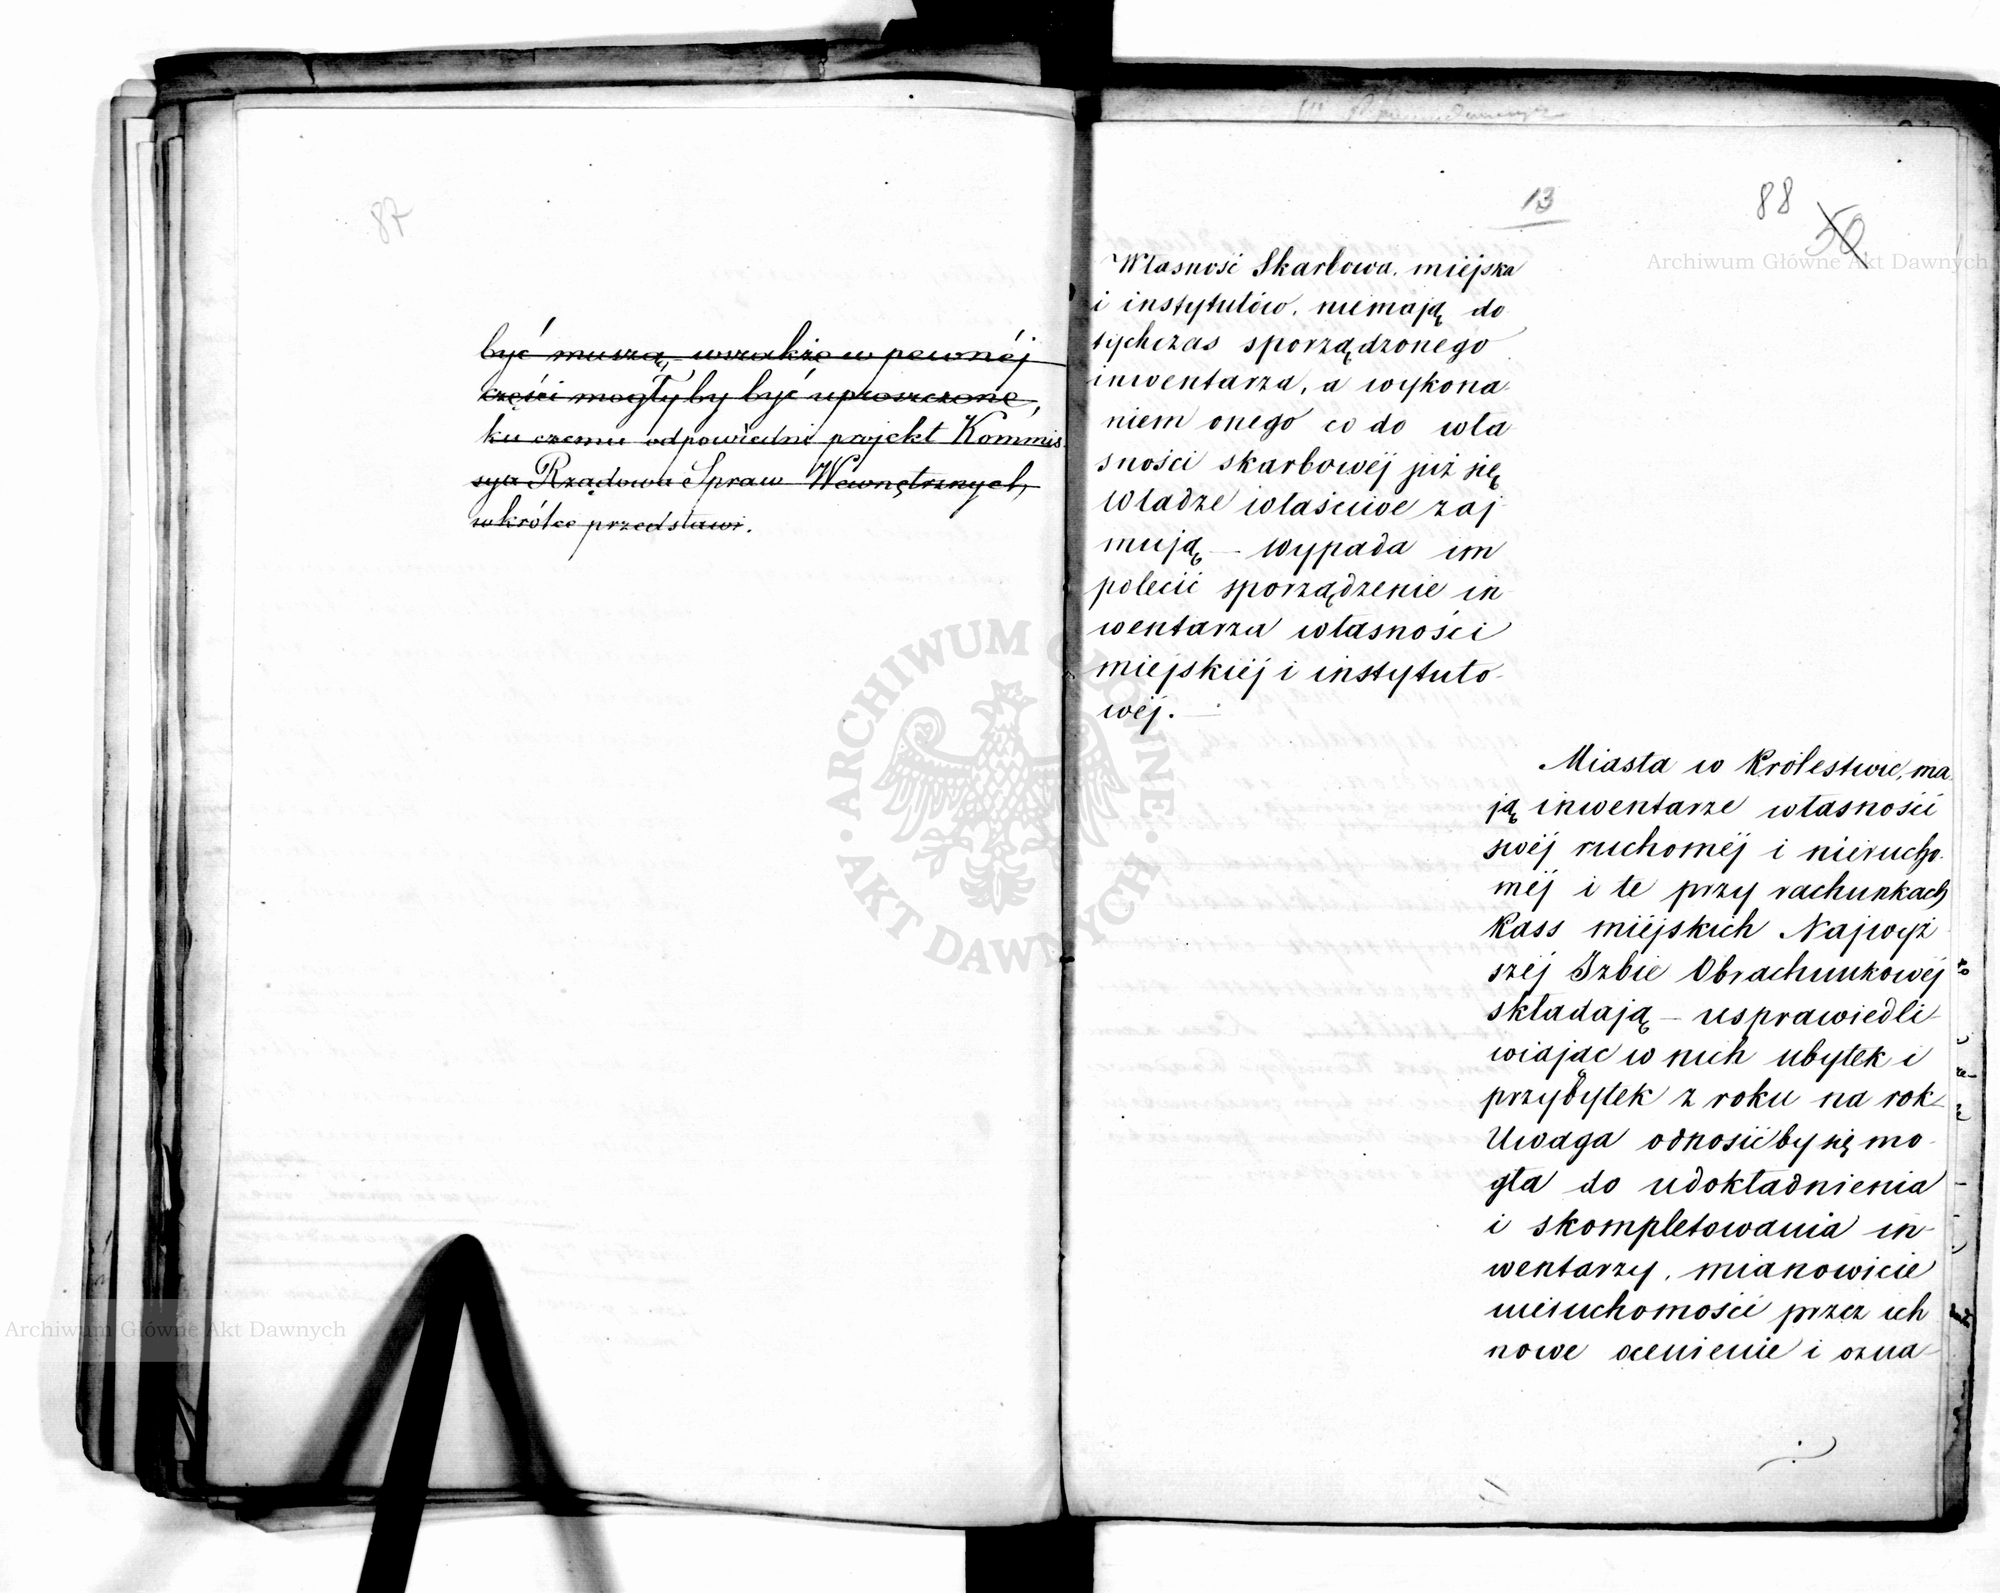 87
być muszą, wszakże w pewnéj
części mogłyby być uproszczone,
ku czemu odpowiedni projekt Kommis
sya Rządowa Spraw Wewnętrznych,
wkrótce przedstawi.
13
88
50
Własność Skarbowa, miejska
i instytutów, niemają do
tychczas sporządzonego
inwentarza, a wykona
niem onego co do wła
sności skarbowéj już się
Władze właściwe zaj
mują — wypada im
polecić sporządzenie in
wentarza własności
miejskiéj i instytuto-
wéj. —
Miasta w Królestwie, ma
ją inwentarze własności
swéj ruchoméj i nierucho-
méj i te przy rachunkach
Kass miejskich Najwyż
széj Izbie Obrachunkowéj
składają — usprawiedli-
wiając w nich ubytek i
przybytek z roku na rok
Uwaga odnosićby się mo-
gła do udokładnienia
i skompletowania in-
wentarzy, mianowicie
nieruchomości przez ich
nowe ocenienie i ozna-
Archiwum Główne Akt Dawnych
ARCHIWUM GŁÓWNE · AKT DAWNYCH ·
Archiwum Główne Akt Dawnych